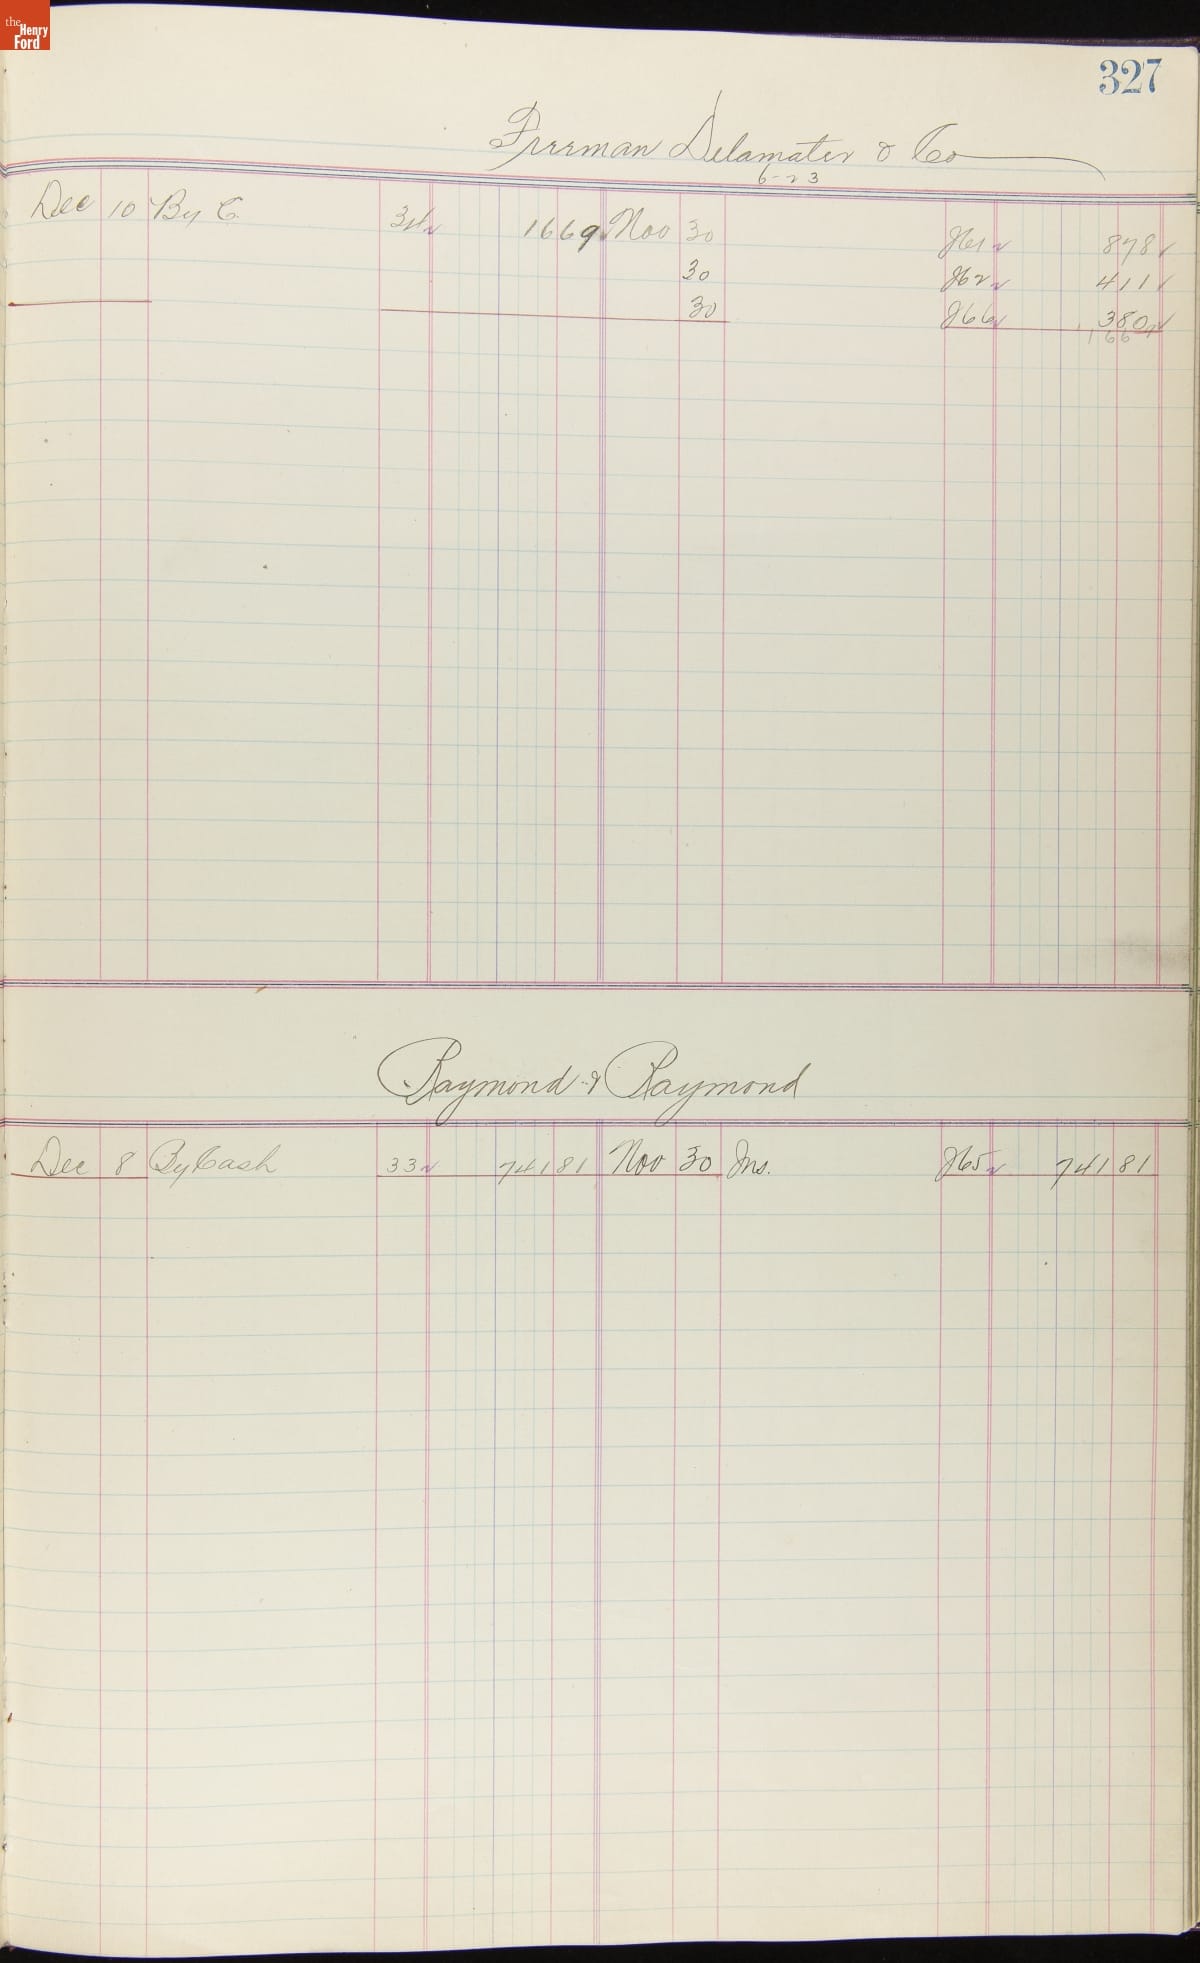 the
Henry
Ford
327
Freeman Delamater & Co
6-23
Dec 10 By C. 34 1669 Nov 30 J61 878
30 J62 411
30 J66 380
1669
Raymond & Raymond
Dec 8 By Cash 33 741 81 Nov 30 Ins. J65 741 81